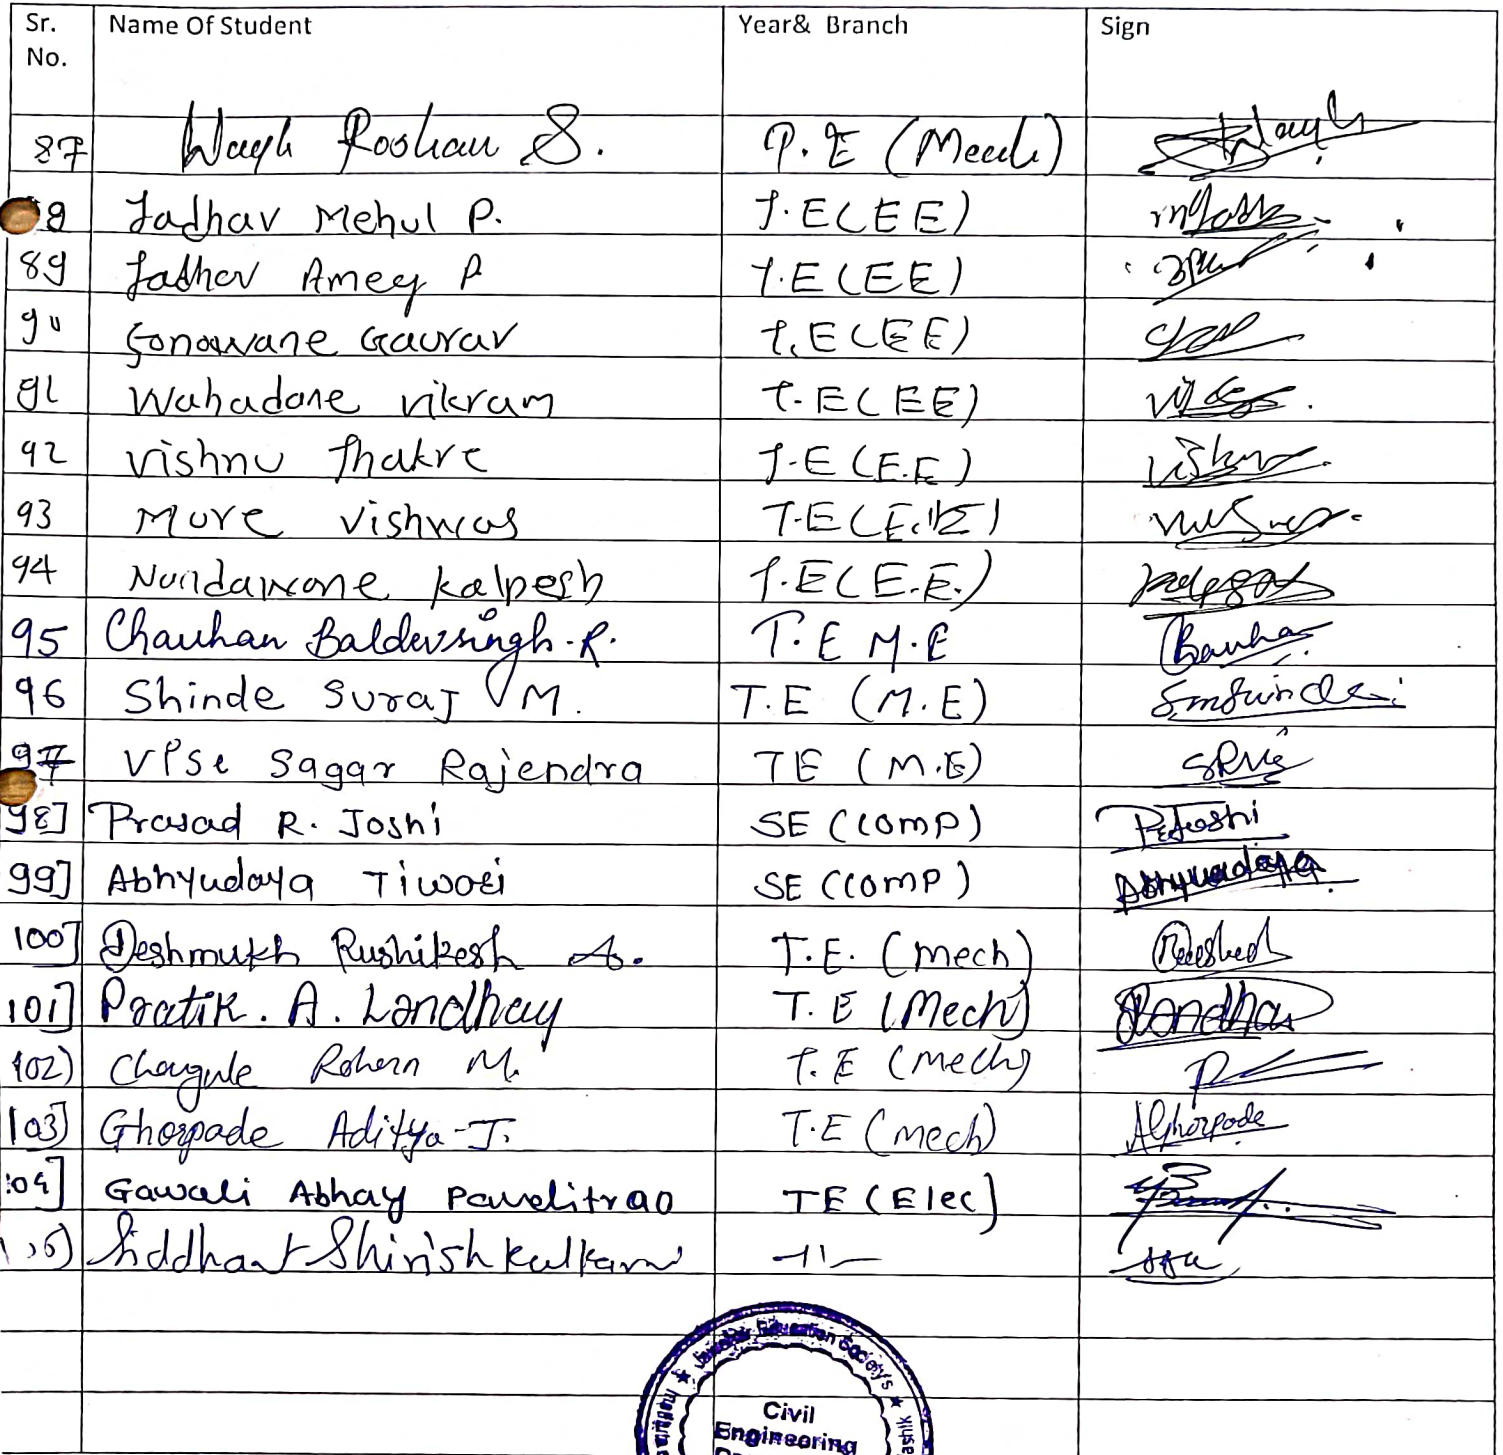 Sr. No. Name Of Student Year& Branch Sign
87 Wagh Roshan S. T.E (Mech) Wagh
88 Jadhav Mehul P. T.E(EE)
89 Jadhav Amey P T.E(EE)
90 Sonawane Gaurav T.E(EE)
91 Wahadane vikram T.E(EE)
92 vishnu Thakre T.E(E.E) Vishnu
93 More vishwas T.E(E.E)
94 Nandawane kalpesh T.E(E.E.)
95 Chauhan Baldevsingh.R. T.E M.E Chauhan
96 Shinde Suraj M. T.E (M.E) SmShinde
97 Vise Sagar Rajendra TE (M.E) SRVise
98] Prasad R. Joshi SE (comp) PRJoshi
99] Abhyudaya Tiwari SE (comp) Abhyudaya
100] Deshmukh Rushikesh A. T.E. (mech)
101] Pratik. A. Landhay T.E (Mech)
102) Chougule Rohan M. T.E (mech)
103] Ghorpade Aditya-J. T.E (mech) AGhorpade
104] Gawali Abhay Panditrao TE (Elec)
105) Siddhant Shirish Kulkarni -11-
Education Society's
Civil
Engineering